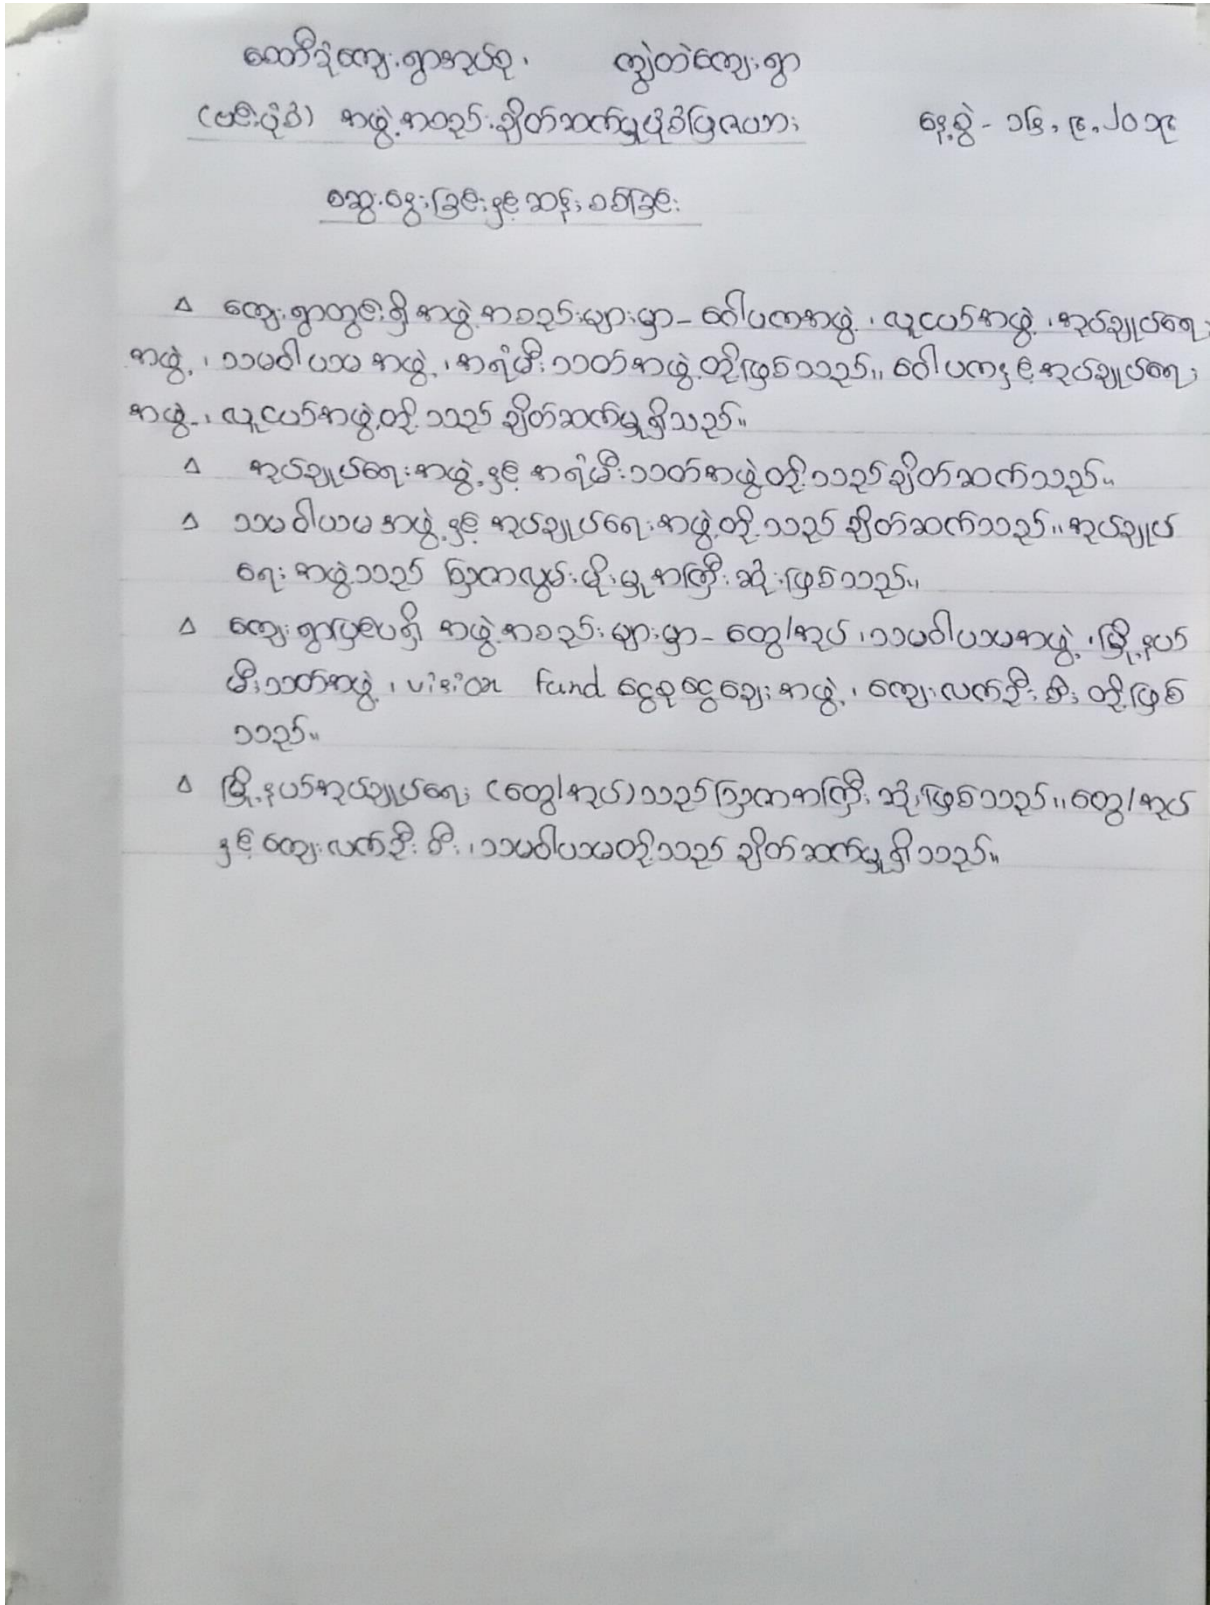 တောဒိုကျေးရွာအုပ်စု၊ ကျွဲတဲကျေးရွာ
(ဗင်းပုံစံ) အဖွဲ့အစည်းချိတ်ဆက်မှုပုံစံပြဇယား နေ့စွဲ - ၁၆,၉,၂၀၁၉
ဆွေးနွေးခြင်းနှင့်ဆန်းစစ်ခြင်း
∆ ကျေးရွာတွင်းရှိအဖွဲ့အစည်းများမှာ - ဂေါပကအဖွဲ့၊ လူငယ်အဖွဲ့၊ အုပ်ချုပ်ရေး
အဖွဲ့၊ သမဝါယမအဖွဲ့၊ အရံမီးသတ်အဖွဲ့တို့ဖြစ်သည်။ ဂေါပကနှင့်အုပ်ချုပ်ရေး
အဖွဲ့၊ လူငယ်အဖွဲ့တို့သည် ချိတ်ဆက်မှုရှိသည်။
∆ အုပ်ချုပ်ရေးအဖွဲ့နှင့် အရံမီးသတ်အဖွဲ့တို့သည်ချိတ်ဆက်သည်။
∆ သမဝါယမအဖွဲ့နှင့် အုပ်ချုပ်ရေးအဖွဲ့တို့သည် ချိတ်ဆက်သည်။ အုပ်ချုပ်
ရေးအဖွဲ့သည် ဩဇာလွှမ်းမိုးမှုအကြီးဆုံးဖြစ်သည်။
∆ ကျေးရွာပြင်ပရှိ အဖွဲ့အစည်းများမှာ - ထွေ/အုပ်၊ သမဝါယမအဖွဲ့၊ မြို့နယ်
မီးသတ်အဖွဲ့၊ vision fund ငွေစုငွေချေးအဖွဲ့၊ ကျေးလက်ဦးစီး တို့ဖြစ်
သည်။
∆ မြို့နယ်အုပ်ချုပ်ရေး (ထွေ/အုပ်) သည်ဩဇာအကြီးဆုံးဖြစ်သည်။ ထွေ/အုပ်
နှင့်ကျေးလက်ဦးစီး၊ သမဝါယမတို့သည် ချိတ်ဆက်မှုရှိသည်။